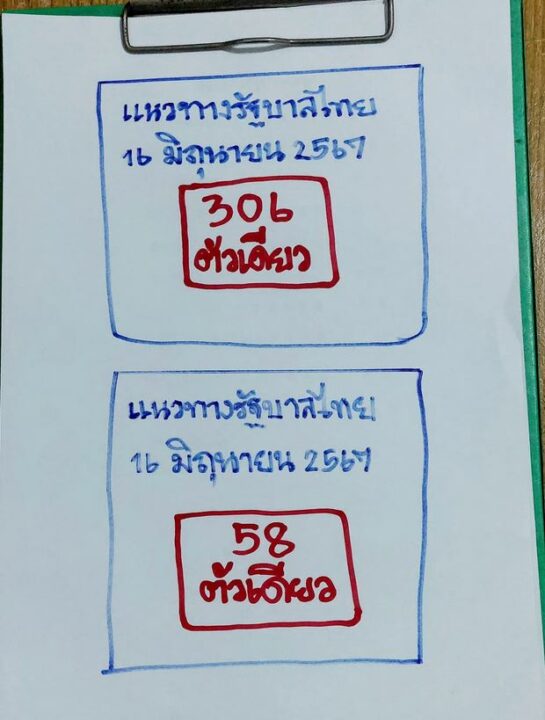 แนวทางรัฐบาลไทย
16 มิถุนายน 2567
306
ตัวเดียว
แนวทางรัฐบาลไทย
16 มิถุนายน 2567
58
ตัวเดียว